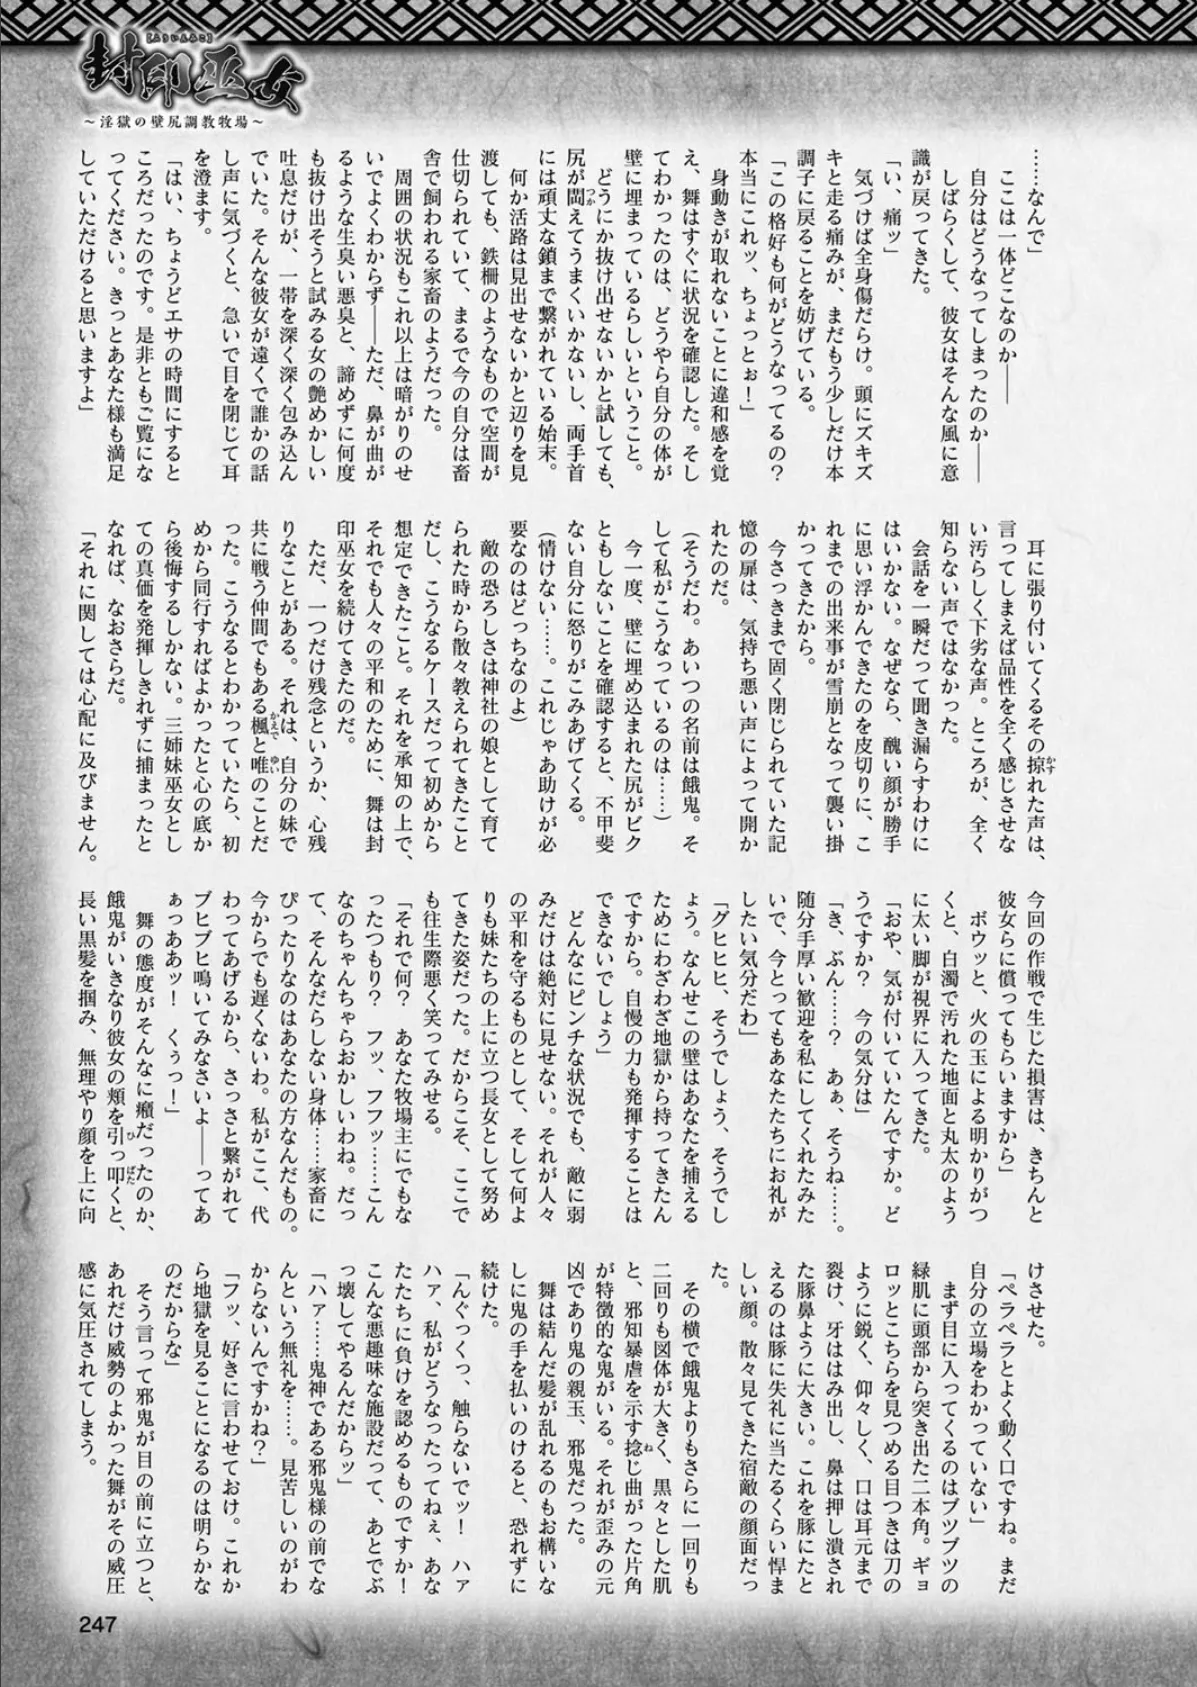 ふういんみこ
封印巫女
～淫獄の壁尻調教牧場～
……なんで」
ここは一体どこなのか――
自分はどうなってしまったのか――
しばらくして、彼女はそんな風に意
識が戻ってきた。
「い、痛ッ」
気づけば全身傷だらけ。頭にズキズ
キと走る痛みが、まだもう少しだけ本
調子に戻ることを妨げている。
「この格好も何がどうなってるの？
本当にこれッ、ちょっとぉ！」
身動きが取れないことに違和感を覚
え、舞はすぐに状況を確認した。そし
てわかったのは、どうやら自分の体が
壁に埋まっているらしいということ。
どうにか抜け出せないかと試しても、
尻が閊えてうまくいかないし、両手首
には頑丈な鎖まで繋がれている始末。
何か活路は見出せないかと辺りを見
渡しても、鉄柵のようなもので空間が
仕切られていて、まるで今の自分は畜
舎で飼われる家畜のようだった。
周囲の状況もこれ以上は暗がりのせ
いでよくわからず――ただ、鼻が曲が
るような生臭い悪臭と、諦めずに何度
も抜け出そうと試みる女の艶めかしい
吐息だけが、一帯を深く深く包み込ん
でいた。そんな彼女が遠くで誰かの話
し声に気づくと、急いで目を閉じて耳
を澄ます。
「はい、ちょうどエサの時間にすると
ころだったのです。是非ともご覧にな
ってください。きっとあなた様も満足
していただけると思いますよ」
耳に張り付いてくるその掠れた声は、
言ってしまえば品性を全く感じさせな
い汚らしく下劣な声。ところが、全く
知らない声ではなかった。
会話を一瞬だって聞き漏らすわけに
はいかない。なぜなら、醜い顔が勝手
に思い浮かんできたのを皮切りに、こ
れまでの出来事が雪崩となって襲い掛
かってきたから。
今さっきまで固く閉じられていた記
憶の扉は、気持ち悪い声によって開か
れたのだ。
（そうだわ。あいつの名前は餓鬼。そ
して私がこうなっているのは……）
今一度、壁に埋め込まれた尻がビク
ともしないことを確認すると、不甲斐
ない自分に怒りがこみあげてくる。
（情けない……。これじゃあ助けが必
要なのはどっちなのよ）
敵の恐ろしさは神社の娘として育て
られた時から散々教えられてきたこと
だし、こうなるケースだって初めから
想定できたこと。それを承知の上で、
それでも人々の平和のために、舞は封
印巫女を続けてきたのだ。
ただ、一つだけ残念というか、心残
りなことがある。それは、自分の妹で
共に戦う仲間でもある楓と唯のことだ
った。こうなるとわかっていたら、初
めから同行すればよかったと心の底か
ら後悔するしかない。三姉妹巫女とし
ての真価を発揮しきれずに捕まったと
なれば、なおさらだ。
「それに関しては心配に及びません。
今回の作戦で生じた損害は、きちんと
彼女らに償ってもらいますから」
ボウッと、火の玉による明かりがつ
くと、白濁で汚れた地面と丸太のよう
に太い脚が視界に入ってきた。
「おや、気が付いていたんですか。ど
うですか？　今の気分は」
「き、ぶん……？　あぁ、そうね……。
随分手厚い歓迎を私にしてくれたみた
いで、今とってもあなたたちにお礼が
したい気分だわ」
「グヒヒヒ、そうでしょう、そうでし
ょう。なんせこの壁はあなたを捕える
ためにわざわざ地獄から持ってきたん
ですから。自慢の力も発揮することは
できないでしょう」
どんなにピンチな状況でも、敵に弱
みだけは絶対に見せない。それが人々
の平和を守るものとして、そして何よ
りも妹たちの上に立つ長女として努め
てきた姿だった。だからこそ、ここで
も往生際悪く笑ってみせる。
「それで何？　あなた牧場主にでもな
ったつもり？　フッ、フフッ……こん
なのちゃんちゃらおかしいわね。だっ
て、そんなだらしない身体……家畜に
ぴったりなのはあなたの方なんだもの。
今からでも遅くないわ。私がここ、代
わってあげるから、さっさと繋がれて
ブヒブヒ鳴いてみなさいよ――ってあ
ぁっああッ！　くぅっ！」
舞の態度がそんなに癪だったのか、
餓鬼がいきなり彼女の頬を引っ叩くと、
長い黒髪を掴み、無理やり顔を上に向
けさせた。
「ペラペラとよく動く口ですね。まだ
自分の立場をわかっていない」
まず目に入ってくるのはブツブツの
緑肌に頭部から突き出た二本角。ギョ
ロッとこちらを見つめる目つきは刀の
ように鋭く、仰々しく、口は耳元まで
裂け、牙ははみ出し、鼻は押し潰され
た豚鼻ように大きい。これを豚にたと
えるのは豚に失礼に当たるくらい悍ま
しい顔。散々見てきた宿敵の顔面だっ
た。
その横で餓鬼よりもさらに一回りも
二回りも図体が大きく、黒々とした肌
と、邪知暴虐を示す捻じ曲がった片角
が特徴的な鬼がいる。それが歪みの元
凶であり鬼の親玉、邪鬼だった。
舞は結んだ髪が乱れるのもお構いな
しに鬼の手を払いのけると、恐れずに
続けた。
「んぐっくっ、触らないでッ！　ハァ
ハァ、私がどうなったってねぇ、あな
たたちに負けを認めるものですか！
こんな悪趣味な施設だって、あとでぶ
っ壊してやるんだからッ」
「ハァ……鬼神である邪鬼様の前でな
んという無礼を……。見苦しいのがわ
からないんですかね？」
「フッ、好きに言わせておけ。これか
ら地獄を見ることになるのは明らかな
のだからな」
そう言って邪鬼が目の前に立つと、
あれだけ威勢のよかった舞がその威圧
感に気圧されてしまう。
247